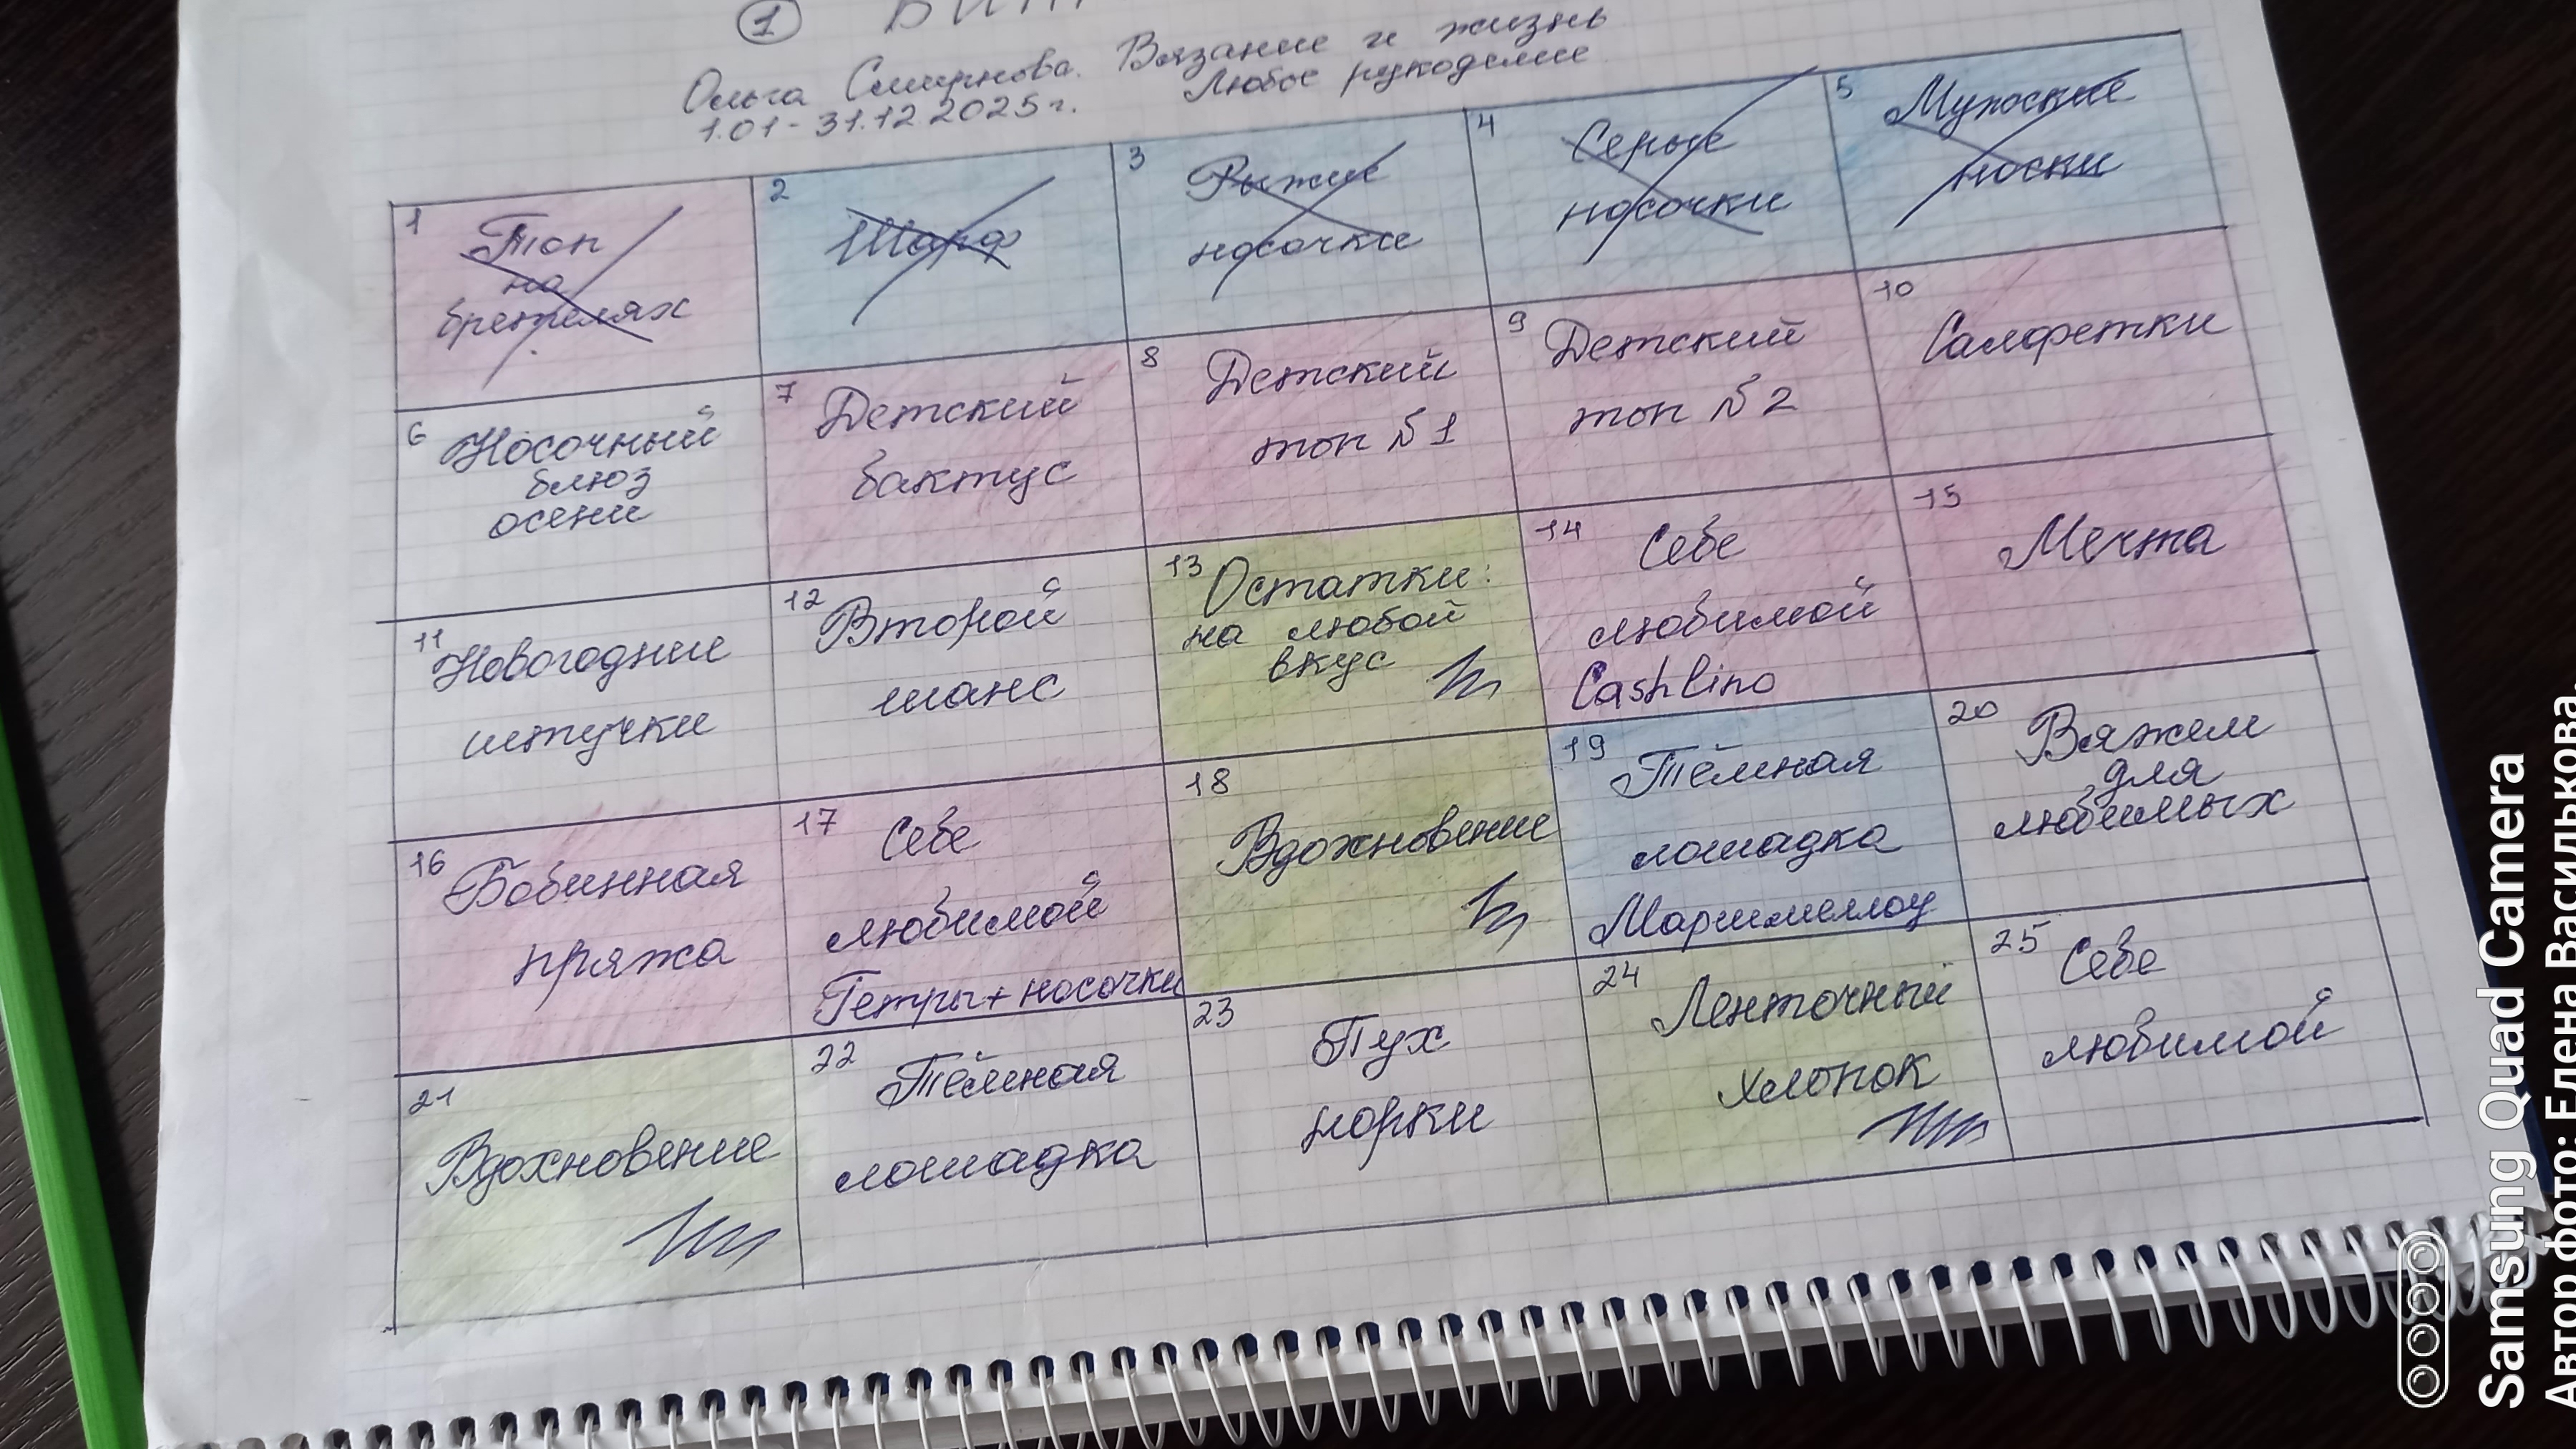 1
Ольга Смирнова. Вязание и жизнь
1.01 - 31.12.2025г. Любое рукоделие
1 Топ
на
бретелях
2 Шарф
3 Рыжие
носочки
4 Серые
носочки
5 Мужские
носки
6 Носочный
блюз
осени
7 Детский
бактус
8 Детский
топ №1
9 Детский
топ №2
10 Салфетки
11 Новогодние
штучки
12 Второй
шанс
13 Остатки:
на любой
вкус
14 Себе
любимой
Cashlino
15 Мечта
16 Бобинная
пряжа
17 Себе
любимой
Гетры+носочки
18 Вдохновение
19 Тёмная
лошадка
Маршмеллоу
20 Вяжем
для
любимых
21 Вдохновение
22 Тёмная
лошадка
23 Пух
норки
24 Ленточный
хлопок
25 Себе
любимой
Samsung Quad Camera
Автор фото: Елена Василькова.